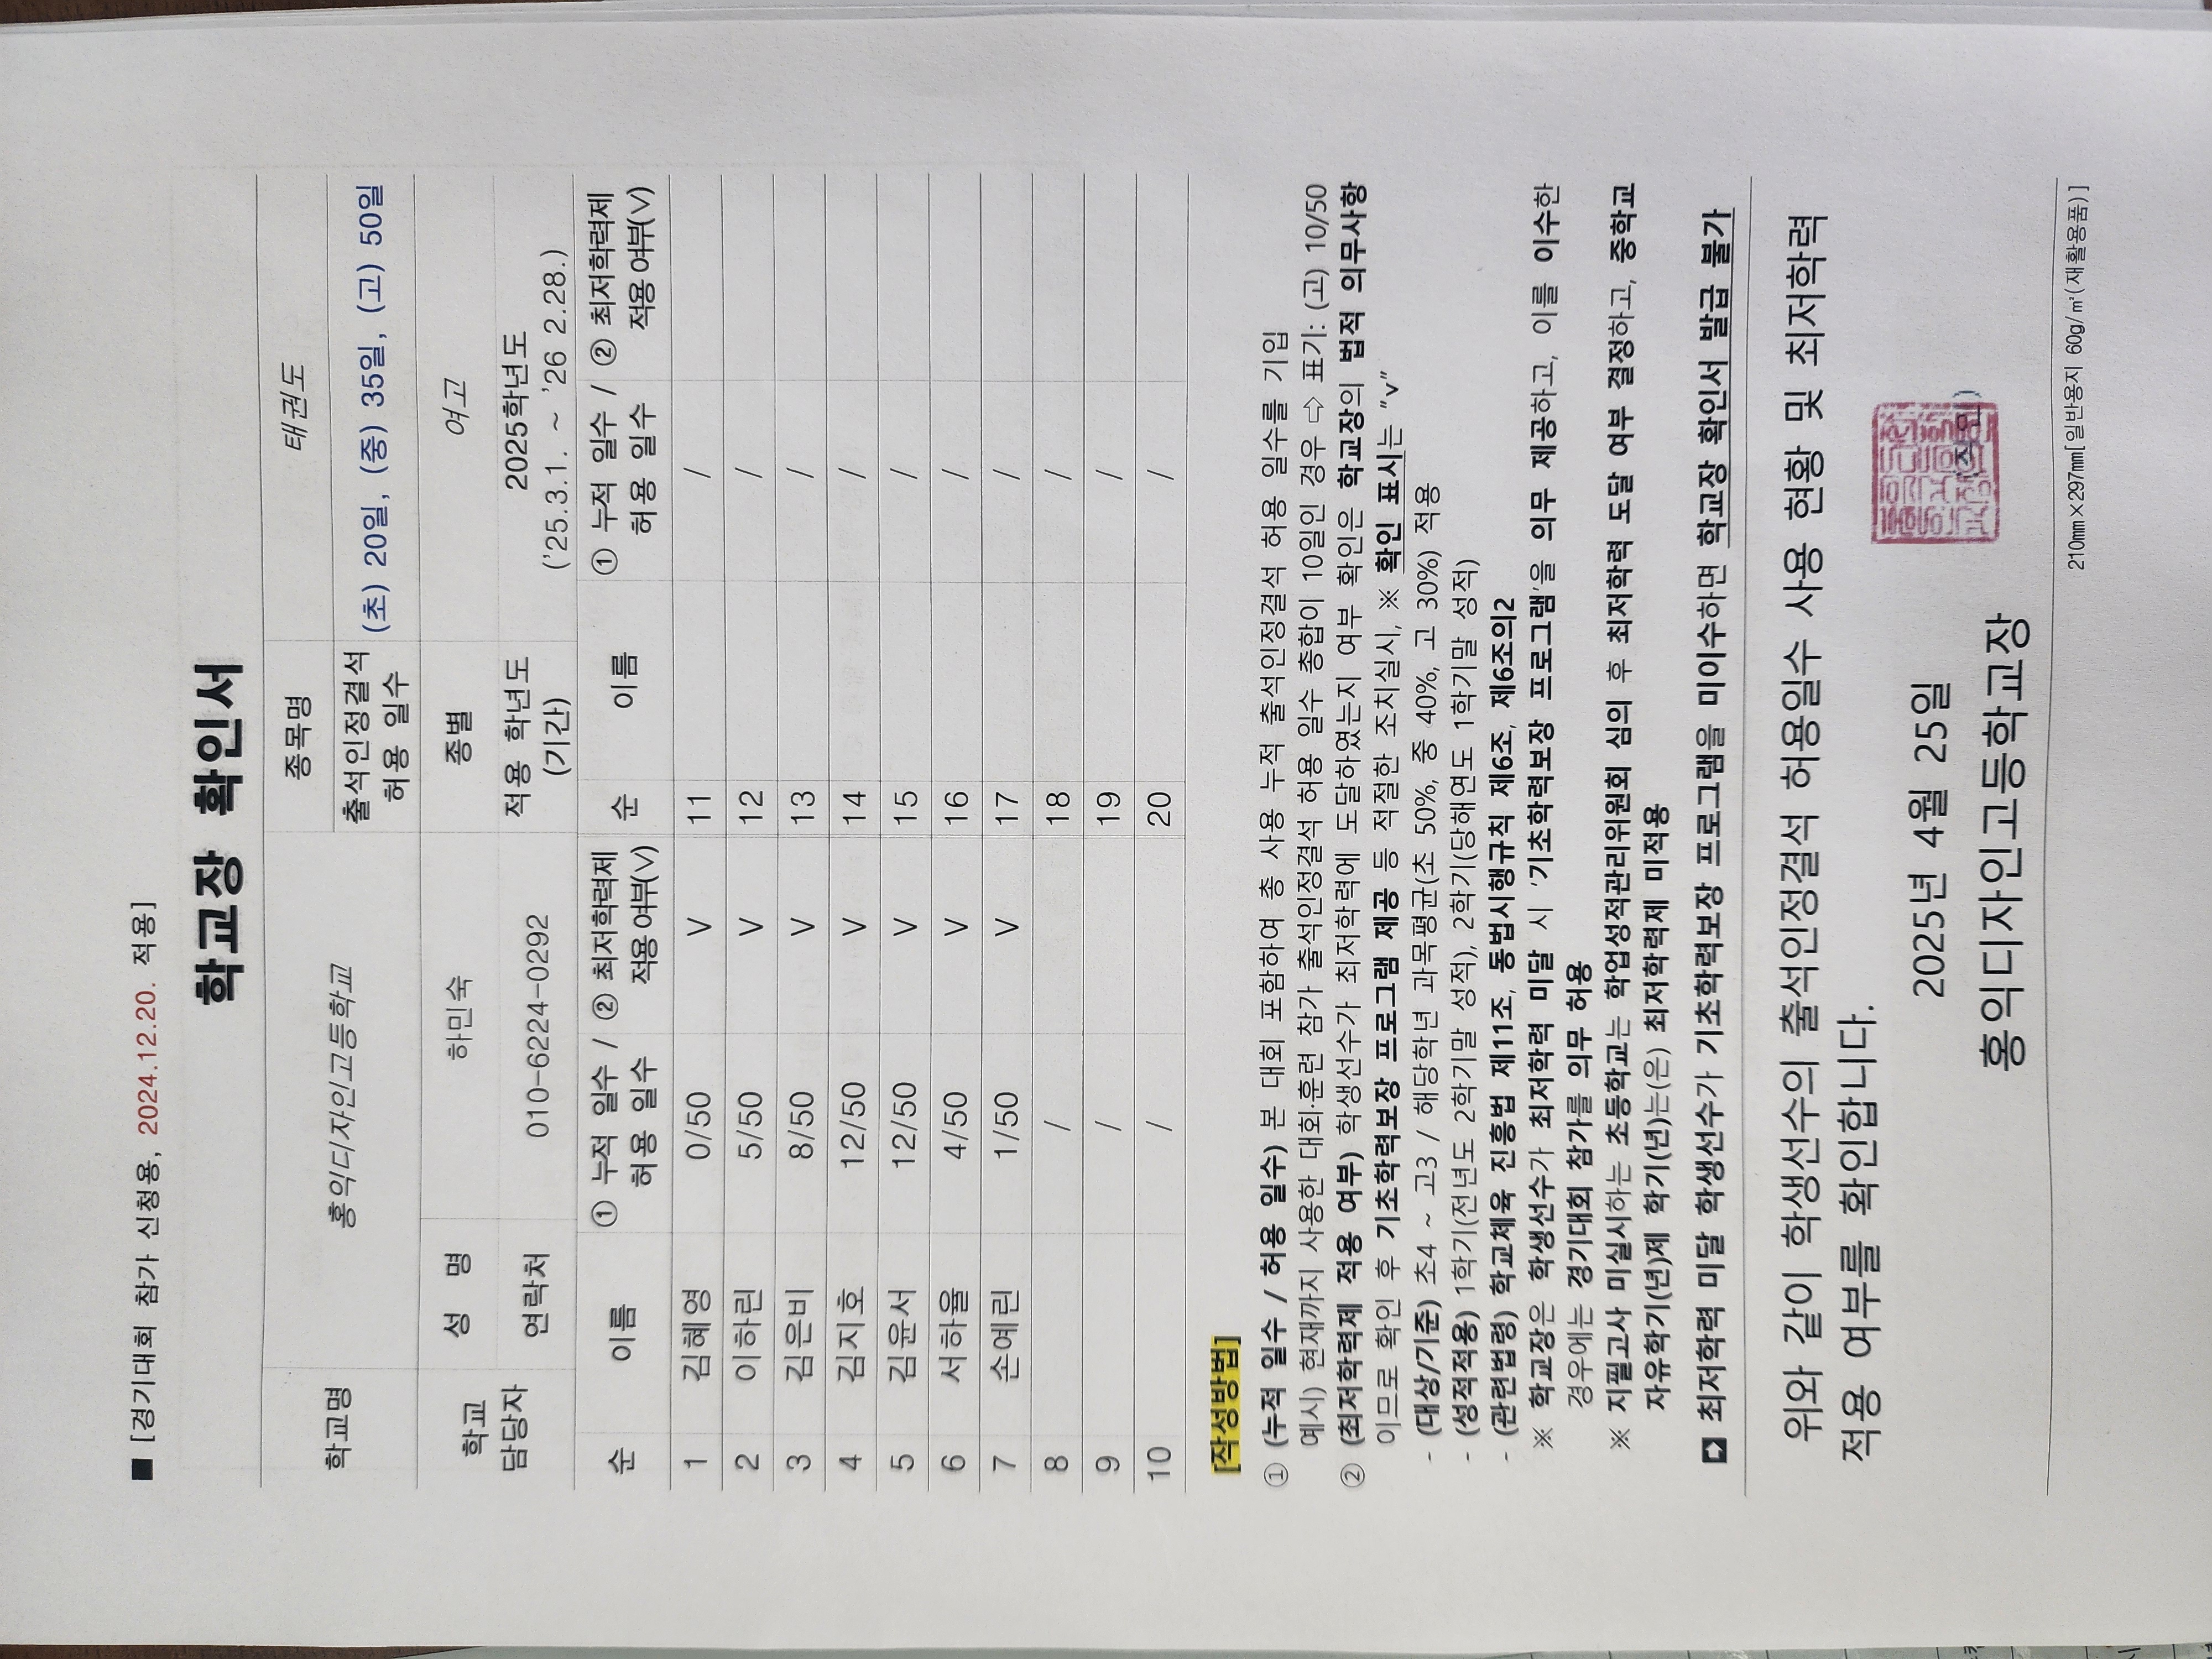 ■ [경기대회 참가 신청용, 2024.12.20. 적용]
학교장 확인서
학교명 홍익디자인고등학교 종목명 태권도
출석인정결석 허용 일수 (초) 20일, (중) 35일, (고) 50일
학교 담당자 성 명 하민숙 종별 여고
연락처 010-6224-0292 적용 학년도 (기간) 2025학년도 ('25.3.1. ~ '26 2.28.)
순 이름 ① 누적 일수 / 허용 일수 ② 최저학력제 적용 여부(∨) 순 이름 ① 누적 일수 / 허용 일수 ② 최저학력제 적용 여부(∨)
1 김혜영 0/50 V 11 /
2 이하린 5/50 V 12 /
3 김은비 8/50 V 13 /
4 김지호 12/50 V 14 /
5 김윤서 12/50 V 15 /
6 서하율 4/50 V 16 /
7 손예린 1/50 V 17 /
8 / 18 /
9 / 19 /
10 / 20 /
[작성방법]
① (누적 일수 / 허용 일수) 본 대회 포함하여 총 사용 누적 출석인정결석 허용 일수를 기입
예시) 현재까지 사용한 대회·훈련 참가 출석인정결석 허용 일수 총합이 10일인 경우 ⇨ 표기: (고) 10/50
② (최저학력제 적용 여부) 학생선수가 최저학력에 도달하였는지 여부 확인은 학교장의 법적 의무사항
이므로 확인 후 기초학력보장 프로그램 제공 등 적절한 조치실시, ※ 확인 표시는 "v"
- (대상/기준) 초4 ~ 고3 / 해당학년 과목평균(초 50%, 중 40%, 고 30%) 적용
- (성적적용) 1학기(전년도 2학기말 성적), 2학기(당해연도 1학기말 성적)
- (관련법령) 학교체육 진흥법 제11조, 동법시행규칙 제6조, 제6조의2
※ 학교장은 학생선수가 최저학력 미달 시 '기초학력보장 프로그램'을 의무 제공하고, 이를 이수한
경우에는 경기대회 참가를 의무 허용
※ 지필고사 미실시하는 초등학교는 학업성적관리위원회 심의 후 최저학력 도달 여부 결정하고, 중학교
자유학기(년)제 학기(년)는(은) 최저학력제 미적용
최저학력 미달 학생선수가 기초학력보장 프로그램을 미이수하면 학교장 확인서 발급 불가
위와 같이 학생선수의 출석인정결석 허용일수 사용 현황 및 최저학력
적용 여부를 확인합니다.
2025년 4월 25일
홍익디자인고등학교장
210㎜×297㎜[일반용지 60g/㎡(재활용품)]